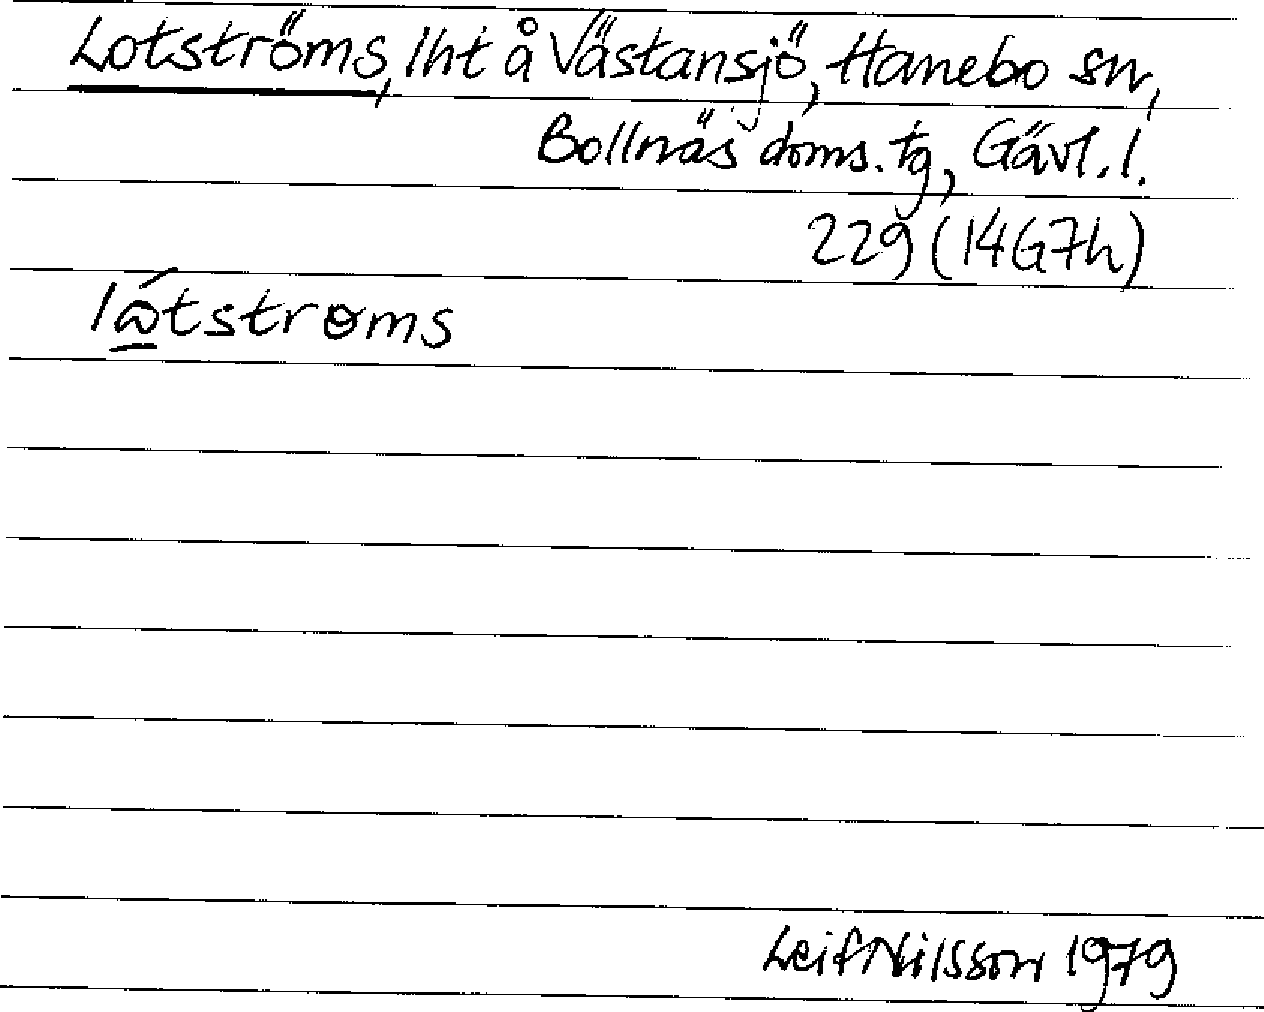 Lotströms, lht å Västansjö, Hanebo sn,
Bollnäs doms. tg, Gävl. l.
229 (14G7h)
Leif Nilsson 1979